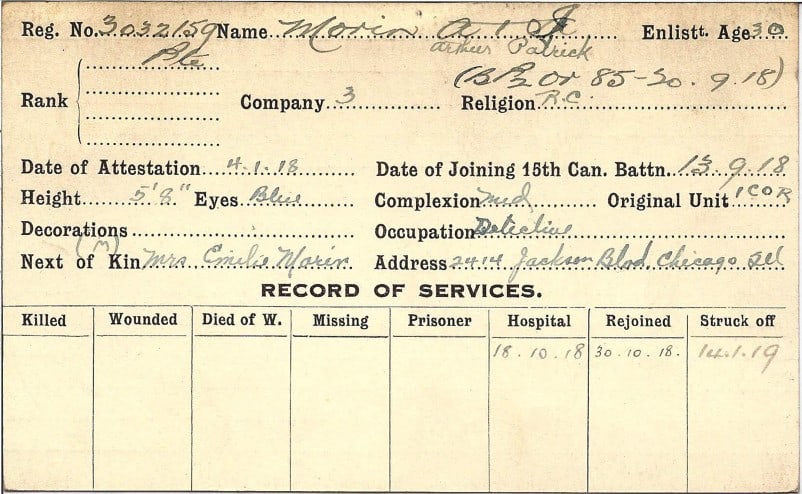 Reg. No. 3032159 Name Morin A Enlistt. Age 30
Arthur Patrick
Pte (B P2 Or 85-20.9.18)
Rank Company 3 Religion R.C.
Date of Attestation 4.1.18 Date of Joining 15th Can. Battn. 13.9.18
Height 5'8" Eyes Blue Complexion Med Original Unit 1COR
Decorations Occupation Detective
(M)
Next of Kin Mrs. Emilie Morin Address 2414 Jackson Blvd Chicago Ill
RECORD OF SERVICES.
Killed Wounded Died of W. Missing Prisoner Hospital Rejoined Struck off
18.10.18 30.10.18. 14.1.19